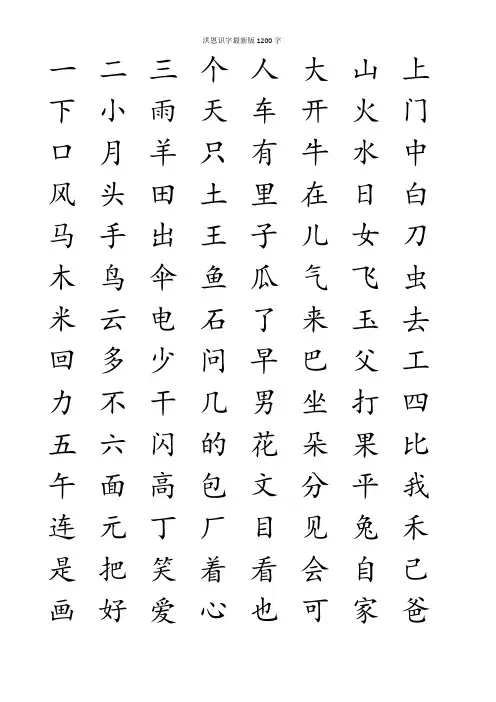 洪恩识字最新版 1200 字
一 二 三 个 人 大 山 上
下 小 雨 天 车 开 火 门
口 月 羊 只 有 牛 水 中
风 头 田 土 里 在 日 白
马 手 出 王 子 儿 女 刀
木 鸟 伞 鱼 瓜 气 飞 虫
米 云 电 石 了 来 玉 去
回 多 少 问 早 巴 父 工
力 不 干 几 男 坐 打 四
五 六 闪 的 花 朵 果 比
午 面 高 包 文 分 平 我
连 元 丁 厂 目 见 兔 禾
是 把 笑 着 看 会 自 己
画 好 爱 心 也 可 家 爸